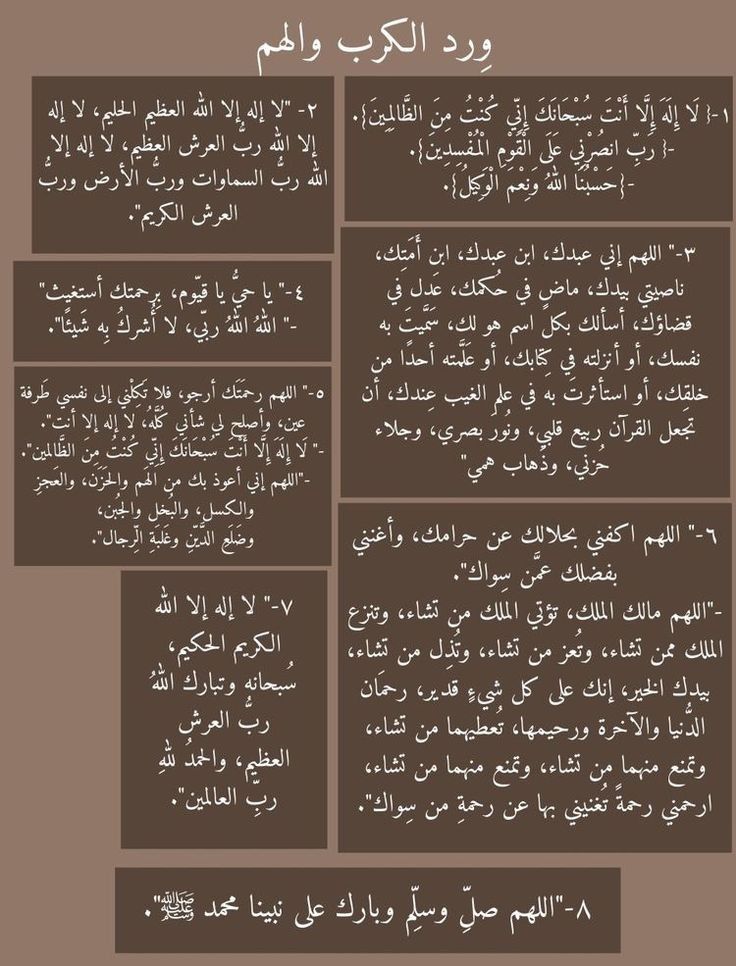 وِرد الكرب والهم
١-{ لَا إِلَهَ إِلَّا أَنْتَ سُبْحَانَكَ إِنِّي كُنْتُ مِنَ الظَّالِمِينَ}.
-{ رَبِّ انصُرْنِي عَلَى الْقَوْمِ الْمُفْسِدِينَ}.
-{حَسْبُنَا اللَّهُ وَنِعْمَ الْوَكِيلُ}.
٢- "لا إله إلا الله العظيم الحليم، لا إله
إلا الله ربُّ العرش العظيم، لا إله إلا
الله ربُّ السماوات وربُّ الأرض وربُّ
العرش الكريم".
٣-" اللهم إني عبدك، ابن عبدك، ابن أَمَتِك،
ناصيتي بيدك، ماضٍ في حُكمك، عَدل في
قضاؤك، أسألك بكل اسم هو لك، سَمَّيتَ به
نفسك، أو أنزلته في كِتابك، أو عَلَّمته أحدًا من
خلقِك، أو استأثرتَ به في علم الغيب عِندك، أن
تجعل القرآن ربيع قلبي، ونُورَ بصري، وجلاء
حُزني، وذَهاب همي"
٤-" يا حيُّ يا قيّوم، بِرحمتك أستغيث"
-" اللهُ اللهُ ربّي، لا أُشركُ بِه شَيئًا".
٥-" اللهم رحمَتَك أرجو، فلا تَكِلْني إلى نفسي طَرفة
عين، وأصلِح لي شأني كُلَّهُ، لا إله إلا أنت".
-" لَا إِلَهَ إِلَّا أَنْتَ سُبْحَانَكَ إِنِّي كُنْتُ مِنَ الظَّالمين".
-"اللهم إني أعوذ بك من الهم والحَزَن، والعَجزِ
والكسل، والبُخل والجُبن،
وضَلَعِ الدَّيْنِ وغَلَبَةِ الرِّجال".
٦-" اللهم اكفني بحلالك عن حرامك، وأغنني
بفضلك عمَّن سِواك".
-"اللهم مالك الملك، تؤتي الملك من تشاء، وتنزع
الملك ممن تشاء، وتُعز من تشاء، وتُذِل من تشاء،
بيدك الخير، إنك على كل شيءٍ قدير، رحمَان
الدُّنيا والآخرة ورحيمها، تُعطيهما من تشاء،
وتمنع منهما من تشاء، وتمنع منهما من تشاء،
ارحمني رحمةً تُغنيني بها عن رحمةِ من سِواك".
٧-" لا إله إلا الله
الكريم الحكيم،
سُبحانه وتبارك اللهُ
ربُّ العرش
العظيم، والحمدُ للهِ
ربِّ العالمين".
٨-"اللهم صلِّ وسلِّم وبارك على نبينا محمد ﷺ".